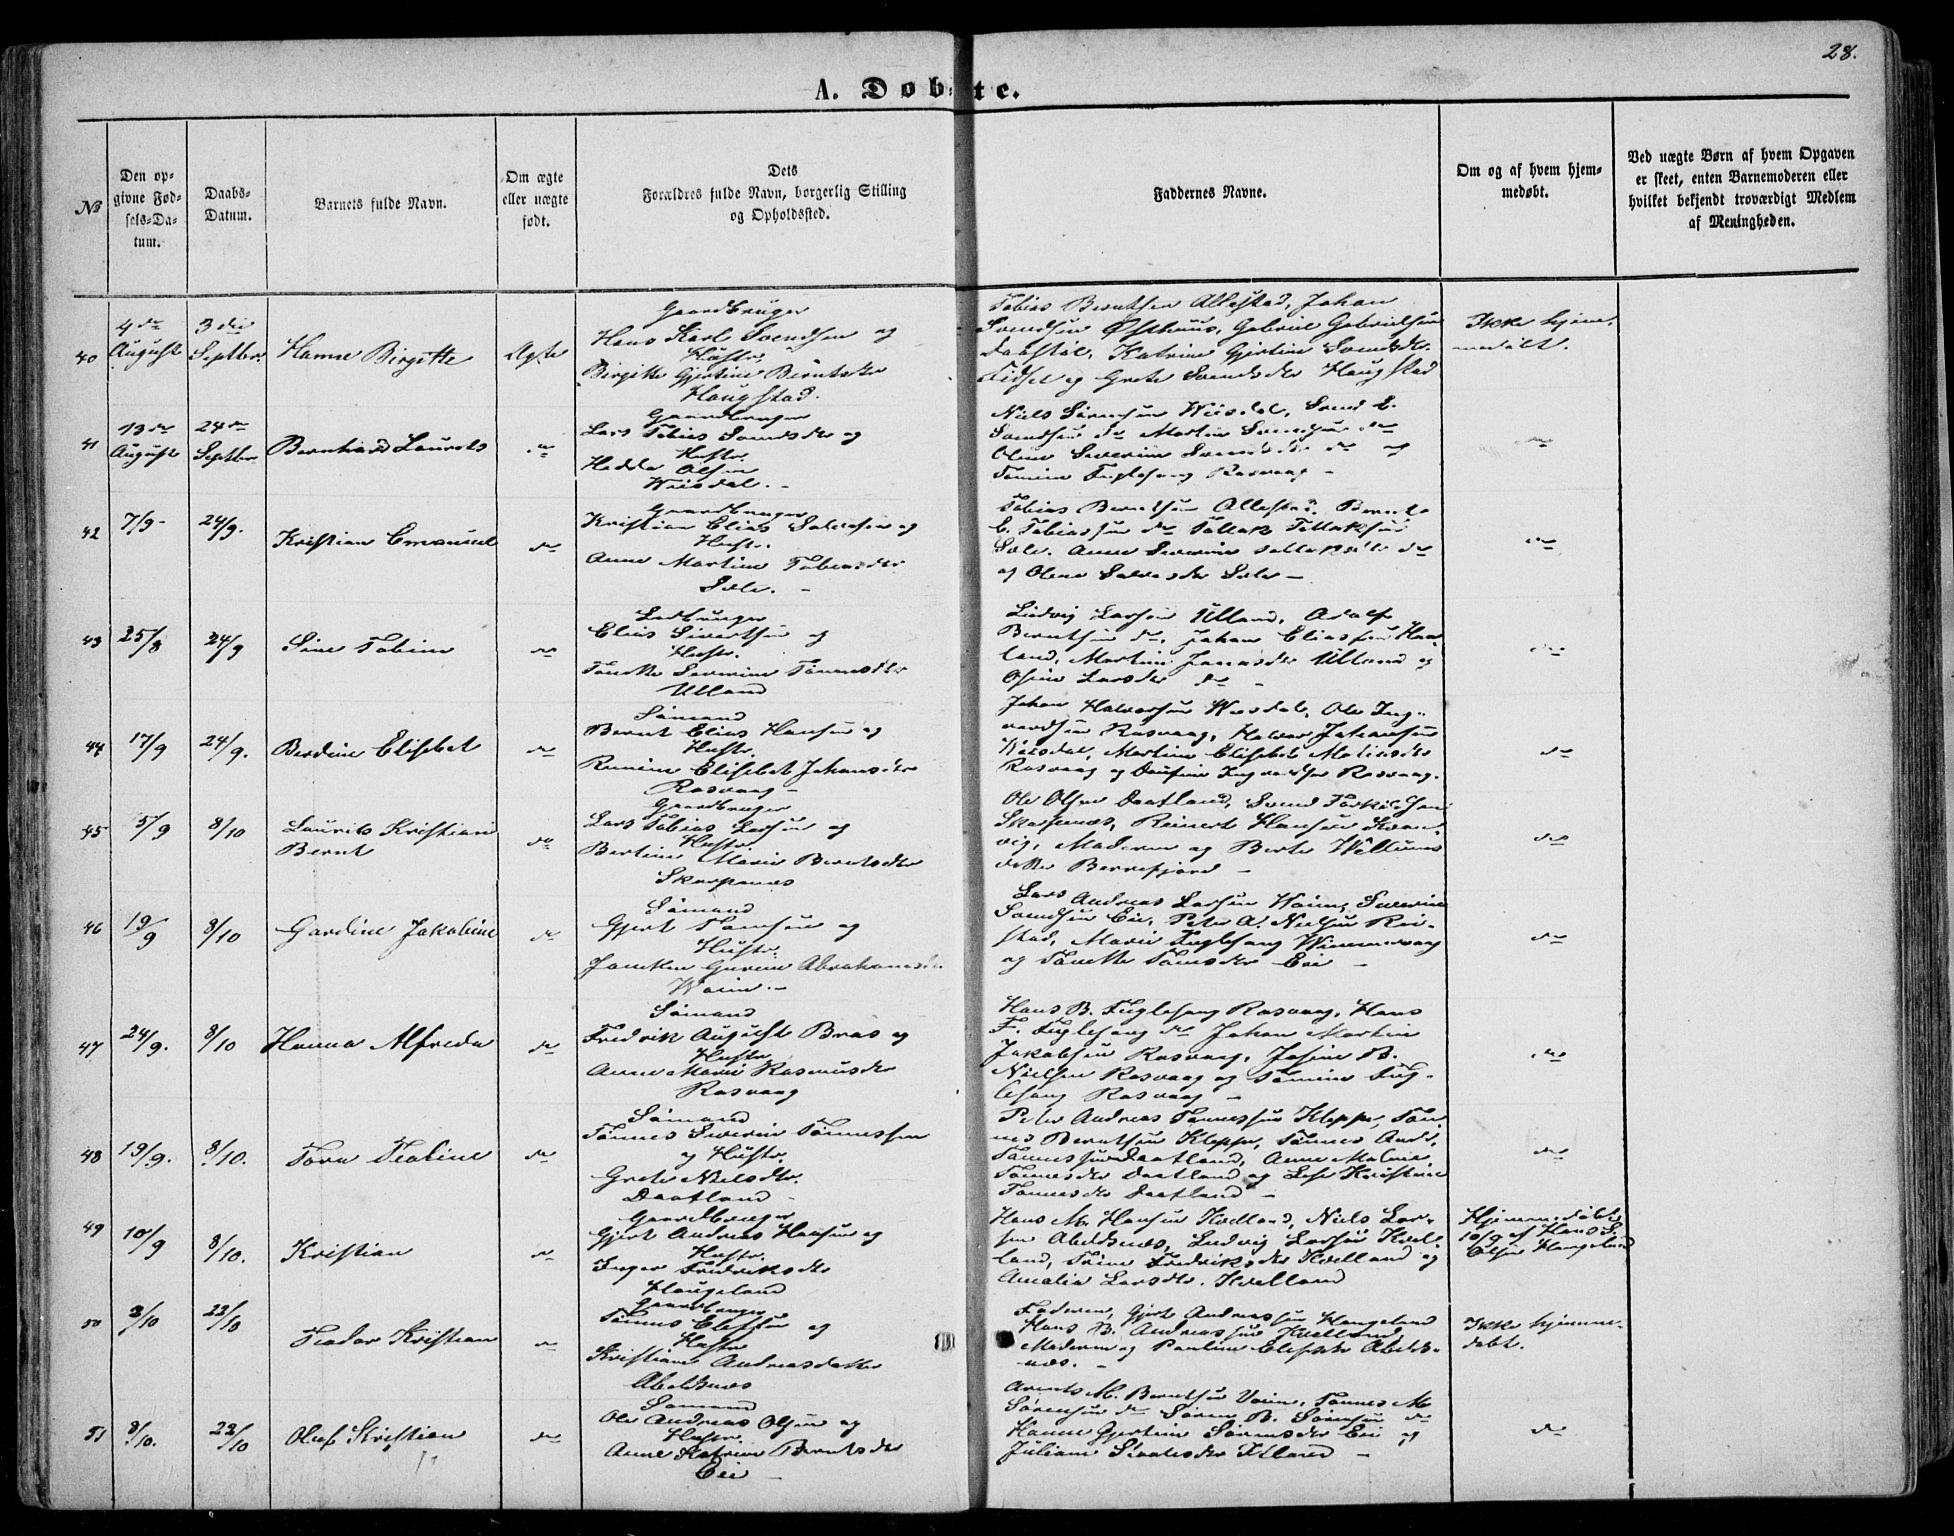 28.
A. Døbte.
№
Den opgivne Fødsels-Datum.
Daabs-Datum.
Barnets fulde Navn.
Om ægte eller uægte født.
Dets Forældres fulde Navn, borgerlig Stilling og Opholdsted.
Faddernes Navne.
Om og af hvem hjemmedøbt.
Ved uægte Børn af hvem Opgaven er skeet, enten Barnemoderen eller hvilket bekjendt troværdigt Medlem af Meningheden.
40
4de August
3die Septber
Hanne Birgitte
Ægte
Gaardbruger
Hans Karl Svendsen og
Hustr.
Birgitte Gjertine Berntsdtr
Haugstad.
Tobias Berntsen Allestad, Johan
Svendsen Østhuus, Gabriel Gabrielsen
Daastøl, Katrine Gjertine Svendsdtr
Fidsel og Grete Svendsdtr Haugstad
Ikke hjem-
medøbt.
41
13de August
24de Septber
Bernhard Laurits
do
Gaardbruger
Lars Tobias Svendsdtr og
Hustr.
Hedda Olsen
Weisdal. -
Niels Sørensen Weisdal, Svend E.
Svendsen do Martin Svendsen do
Oline Severine Svendsdtr do og
Tomine Fuglesang Rasvaag -
do
42
7/9-
24/9.
Kristian Emanuel
do
Gaardbruger
Kristian Elias Salvesen og
Hustr.
Anne Martine Tobiasdtr
Sele. -
Tobias Berntsen Allestad, Bernt
E. Tobiassen do Tollak Tollaksen
Sele. Anne Severine Tollaksdtr do
og Olene Salvesdtr Sele -
do
43
25/8
24/9
Sine Tobine
do
Ledbruger
Elias Sivertsen og
Hustr.
Tonette Severine Tønnesdtr
Ulland
Ludvig Larsen Ulland, Adolf
Berntsen do, Johan Eliassen Haa-
land, Martine Jonasdtr Ulland og
Osine Larsdtr do -
do
44
17/9
24/9.
Berdine Elisebet
do
Sømand
Bernt Elias Hansen og
Hustr.
Rimine Elisebet Johansdtr
Rasvaag -
Johan Halvorsen Weisdal, Ole Ing-
vardsen Rasvaag, Halvor Johansen
Weisdal, Martine Elisebet
Rasvaag og Rasvaag.
do
45
5/9
8/10
Laurits Kristian
Bernt
do
Gaardbruger
Lars Tobias Larsen og
Hustr.
Bertine Marie Berntsdtr
Skarpenæs
Ole Olsen Daatland, Svend Torkildsen
Skarpenæs, Reinert Hansen Kvan-
vig, Moderen og Berte Willums
datter Berrefjord -
do
46
19/9
8/10
Gardine Jakobine
do
Sømand
Gjert Tomsen og
Hustr.
Janiken Gurine Abrahamsdtr
Waine. -
Lars Andreas Larsen Waine, Severin
Svendsen Eie, Peter A. Nielsen Rei-
stad, Marie Fuglesang Wimmervaag
og Tonette Tomsdtr Eie -
do
47
24/9.
8/10
Hanna Alfreda
do
Sømand
Fredrik August Braas og
Hustr
Anne Marie Rasmusdtr
Rasvaag
Hans B. Fuglesang Rasvaag, Hans
F. Fuglesang do Johan Martin
Jakobsen Rasvaag, Josine B.
Nielsen Rasvaag og Tomine Fug-
lesang Rasvaag -
do
48
19/9.
8/10.
Tora Teoline
do
Sømand
Tønnes Severin Tønnessen
og Hustr.
Grete Nielsdtr.
Daatland -
Peter Andreas Tønnessen Kleppe, Tøn-
nes Berntsen Kleppe, Tønnes Andr.
Tønnessen Daatland, Anne Malene
Tønnesdtr Daatland og Lise Kristine
Tønnesdtr Daatland -
do
49
10/9
8/10.
Kristian
do
Gaardbruger
Gjert Andreas Hansen og
Hustr.
Inger Fredriksdtr
Haugeland
Hans M. Hansen Kvelland, Niels Lar-
sen Abelsnæs, Ludvig Larsen Kvel-
land, Trine Fredriksdtr Kvelland og
Amalia Larsdtr. Kvelland
Hjemmedøbt
10/9 af Hans S.
Olsen Haugeland
50
3/10
22/10
Teodor Kristian
do
Gaardbruger
Tønnes Elefsen og
Hustr
Kristiane Andreasdatter
Abelsnæs
Faderen, Gjert Andreassen Haugeland
Hans B. Andreassen Kvelland
Moderen og Pauline Elefsdtr Abels-
næs. -
Ikke hjemme-
døbt.
51
8/10.
22/10
Oluf Kristian
do
Sømand
Ole Andreas Olsen og
Hustr
Anne Katrine Berntsdtr
Eie -
Arents M. Berntsen Vaine, Tønnes M
Sørensen do Søren B. Sørensen do
Hanne Gjertine Sørensdtr Eie og
Juliane Ulland -
do